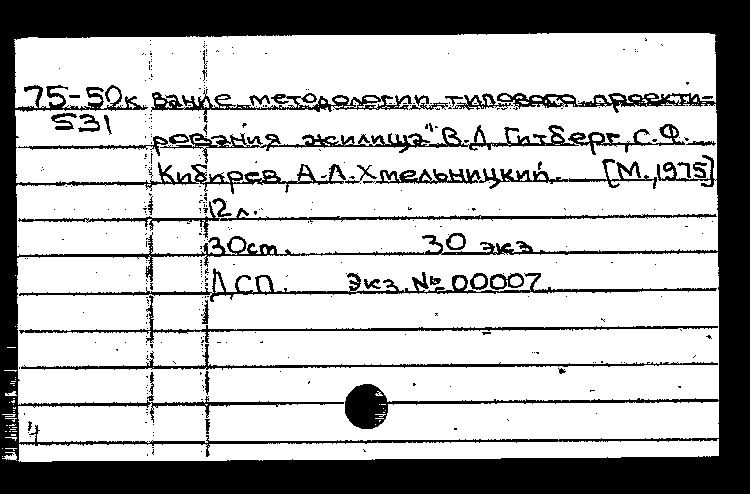 75-50к вание методологии типового проекти-
531
рования жилища" В.Д. Гитберг, С.Ф.
Кибирев, А.Л. Хмельницкий. [М., 1975]
12 л.
30 ст. 30 экз.
ДСП. Экз. № 00007.
4